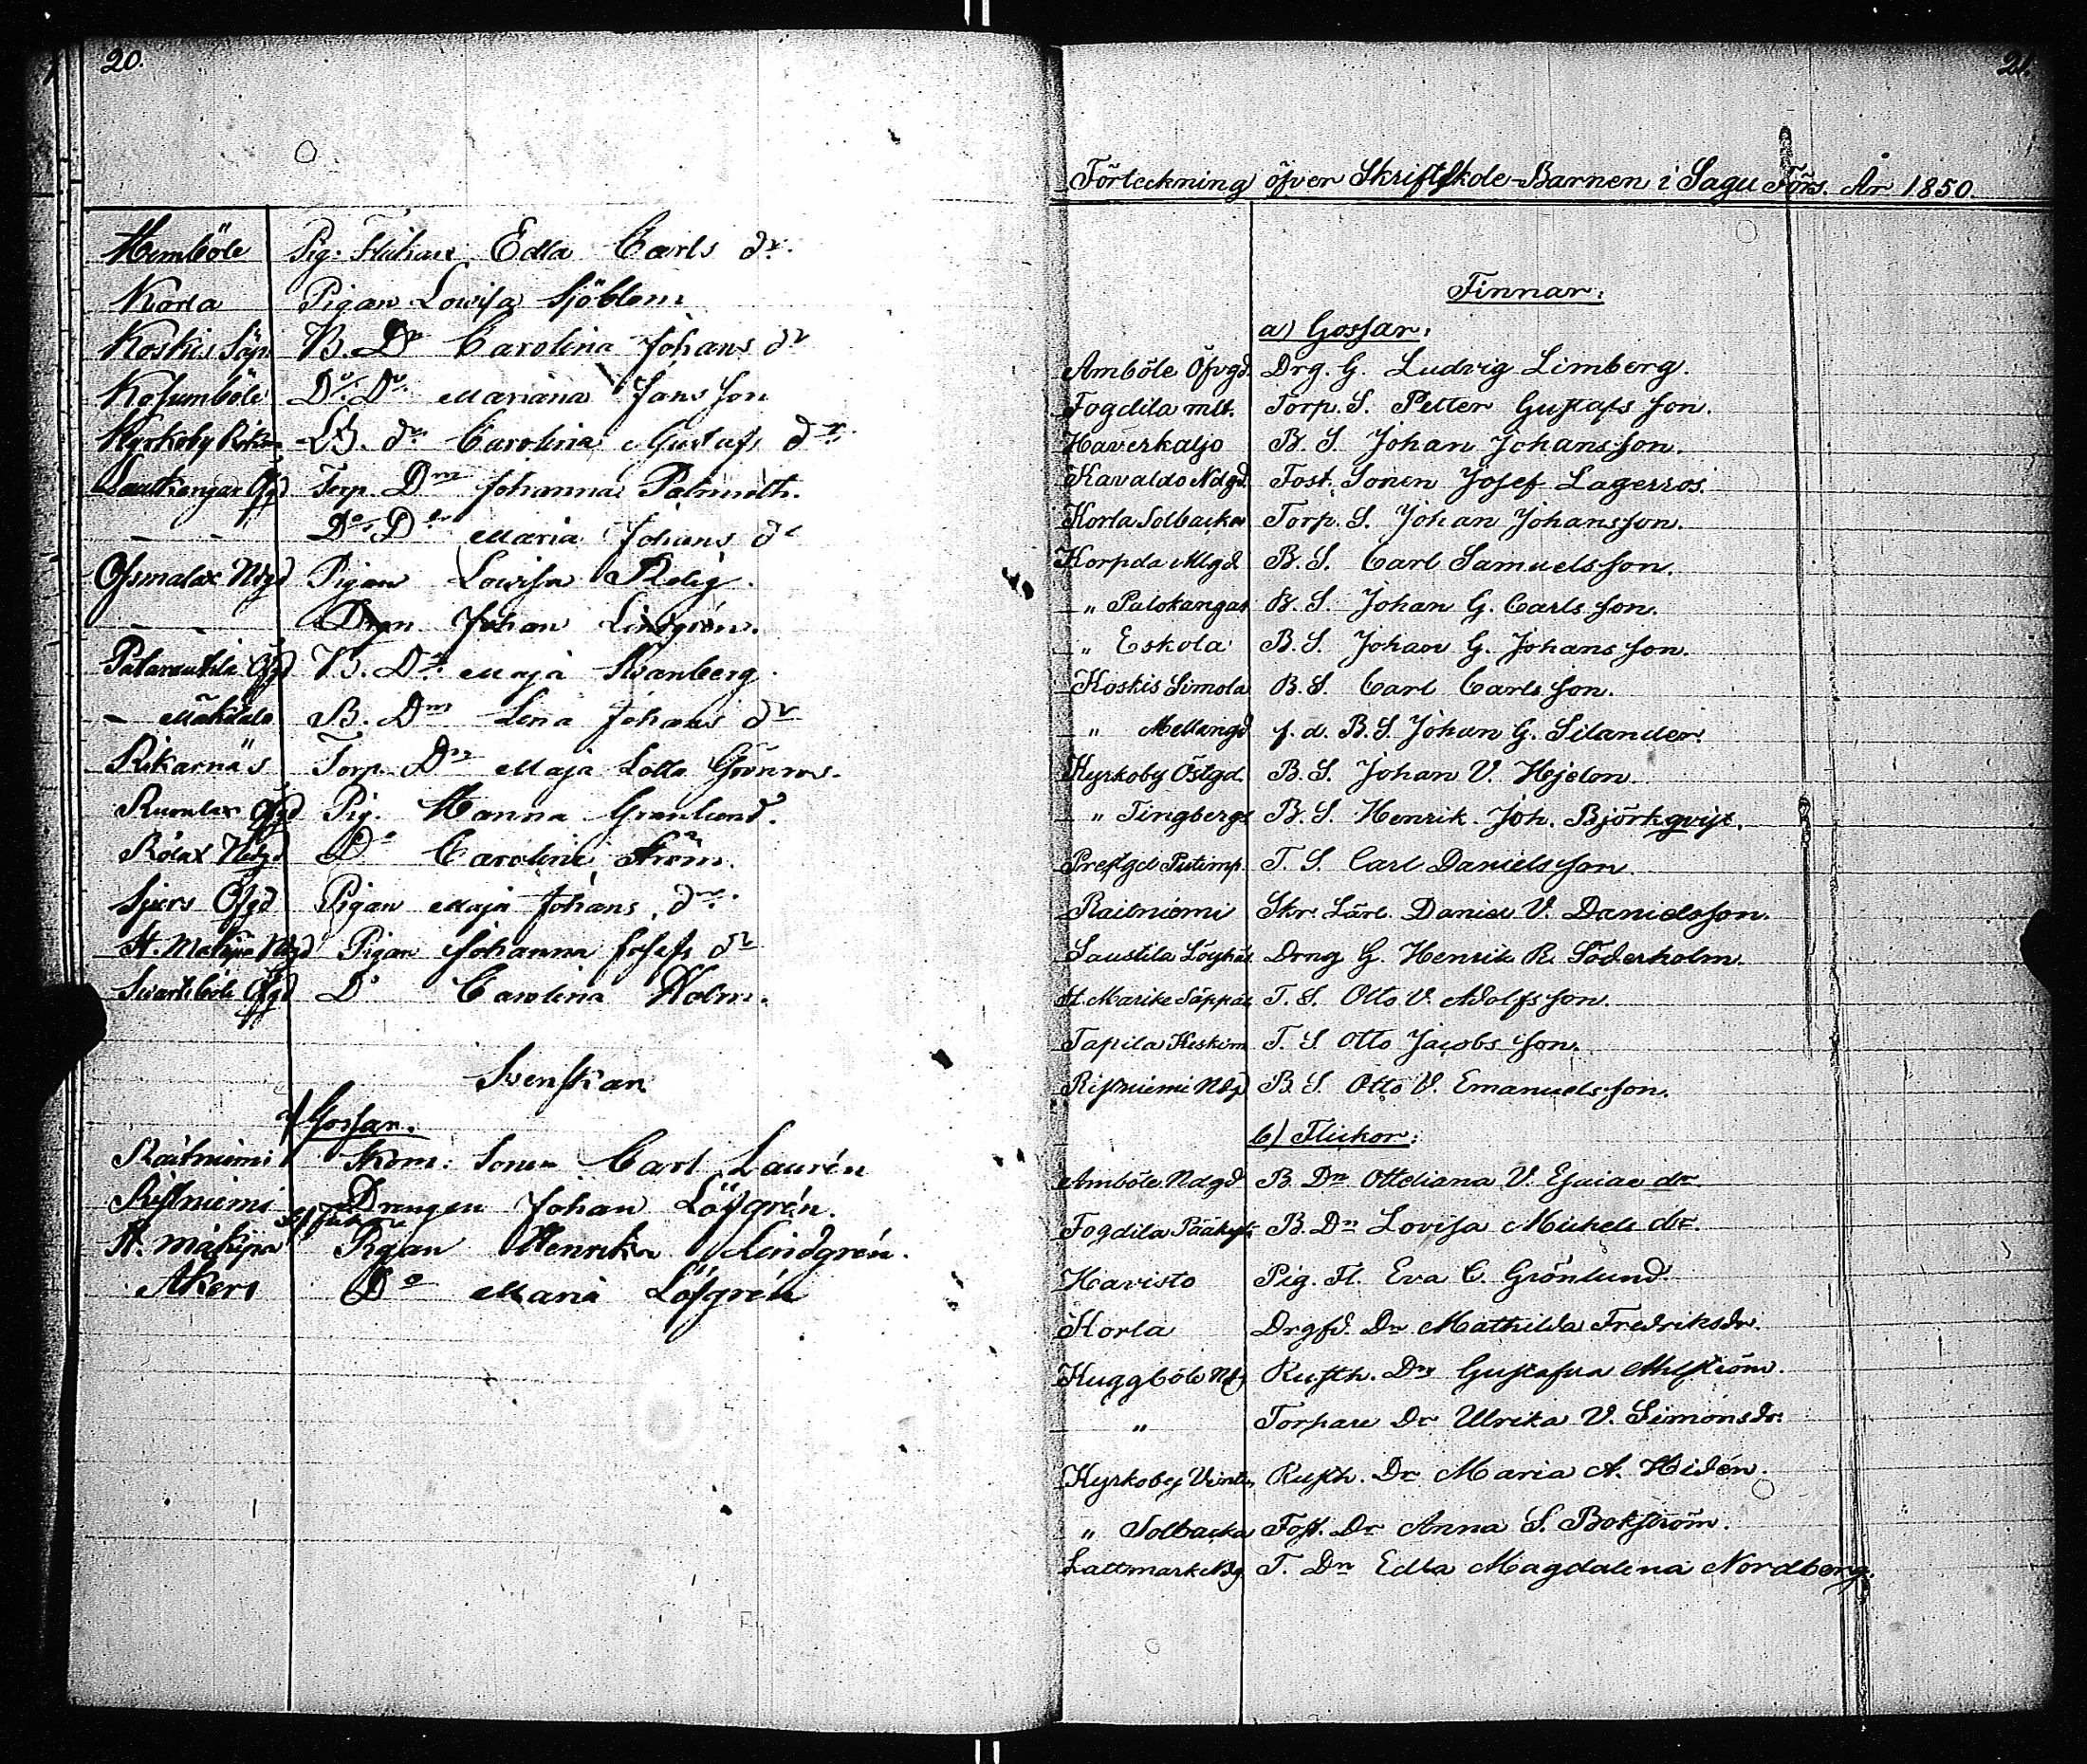 20.
Hemböle Pig. Flickan Edla Carls dr.
Korla Pigan Lovisa Sjöblom
Koskis Säp. B. Dr Carolina Johans dr
Kosumböle Do. Dr. Mariana Jansson
Kyrkoby B. dr Carolina Gustafs dr
Lautkangas Öfgd Torp. Dm Johanna Palmroth.
- - Do. Dr Maria Johans dr
Osmalax Ndgd Pigan Lovisa Relig.
- - Drgn Johan Lindgrén.
Öfgd B. Dr. Maja Svanberg.
- Mäkilale B. Dm Lena Johans dr
Rikarnäs Torp. Dm Maja Lotta Grönros.
Rumlax Öfgd Pig. Hanna Granlund.
Rölax Nedgd Do Carolina Ström.
Sjors Öfgd Pigan Maja Johans dr.
St. Mäkipä Ndgd Pigan Johanna Josefs dr
Svartböle Öfgd Do Carolina Holm.
Svenskar
a/ Gossar.
Raitniemi Skom. Sonen Carl Laurén
Ristniemi Drengen Johan Löfgrén.
b/ Flick
St. Mäkipä Pigan Henrika Lindgrén.
Akers Do Maria Löfgrén
21.
Förteckning öfver Skriftskole-Barnen i Sagu Förs. År 1850.
Finnar:
a) Gossar:
Amböle Öfvgd. Drg. G. Ludvig Limberg.
Fogdila mlt. Torp. S. Petter Gustafs son.
Haverkaljo B. S. Johan Johansson.
Kavaldo Ndgd. Fost. Sonen Josef Lagerros.
Korla Solbacka Torp. S. Johan Johansson.
Korpda Mlgd. B. S. Carl Samuelsson.
" Palokangas B. S. Johan G. Carls son.
" Eskola B. S. Johan G. Johans son.
Koskis Simola B. S. Carl Carls son.
" Mellangd f. d. B. S. Johan G. Silander.
Kyrkoby Östgd. B. S. Johan V. Hjelm.
" Tingbergs B. S. Henrik Joh. Björkqvist.
Prestgd T. S. Carl Daniels son.
Raitniemi Skr. Lärl. Daniel V. Danielsson.
Saustila Löyhäs Drng G. Henrik R. Söderholm.
St. Marike Säppäs T. S. Otto V. Adolfs son.
Tapila Keskim. T. S. Otto Jacobs son.
Ristniemi Ndg. B. S. Otto V. Emanuelsson.
b) Flickor:
Amböle Ndgd B. Dn Ottiliana V. Esaiae dr.
Fogdila B. Dn Lovisa Michels dr.
Havisto Pig. Fl. Eva C. Grönlund.
Korla Drgfd. Dr Mathilda Fredriksdr.
Kuggböle Nd. Rusth. Dr Gustafva Ahlström.
" Torpare Dr Ulrika V. Simonsdr.
Kyrkoby Rusth. Dr Maria A. Hidén.
" Solbacka Fost. Dr Anna S. Bokström.
Lattmark Ndg. T. Dn Edla Magdalena Nordberg.